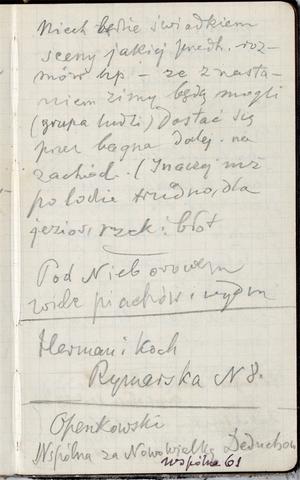 Niech będzie świadkiem
sceny jakiej przedh. roz-
mów np – że z nasta-
niem zimy będą mogli
(grupa ludzi) dostać się
przez bagna dalej na
zachód. (Inaczej niż
po lodzie trudno, dla
jezior, rzek i błot
Pod Nieborowem
wśród piachów i wydm
Herman i Koch
Rymarska N 8.
Openkowski
Wspólna za Nowowielką Deduchow
Wspólna 61